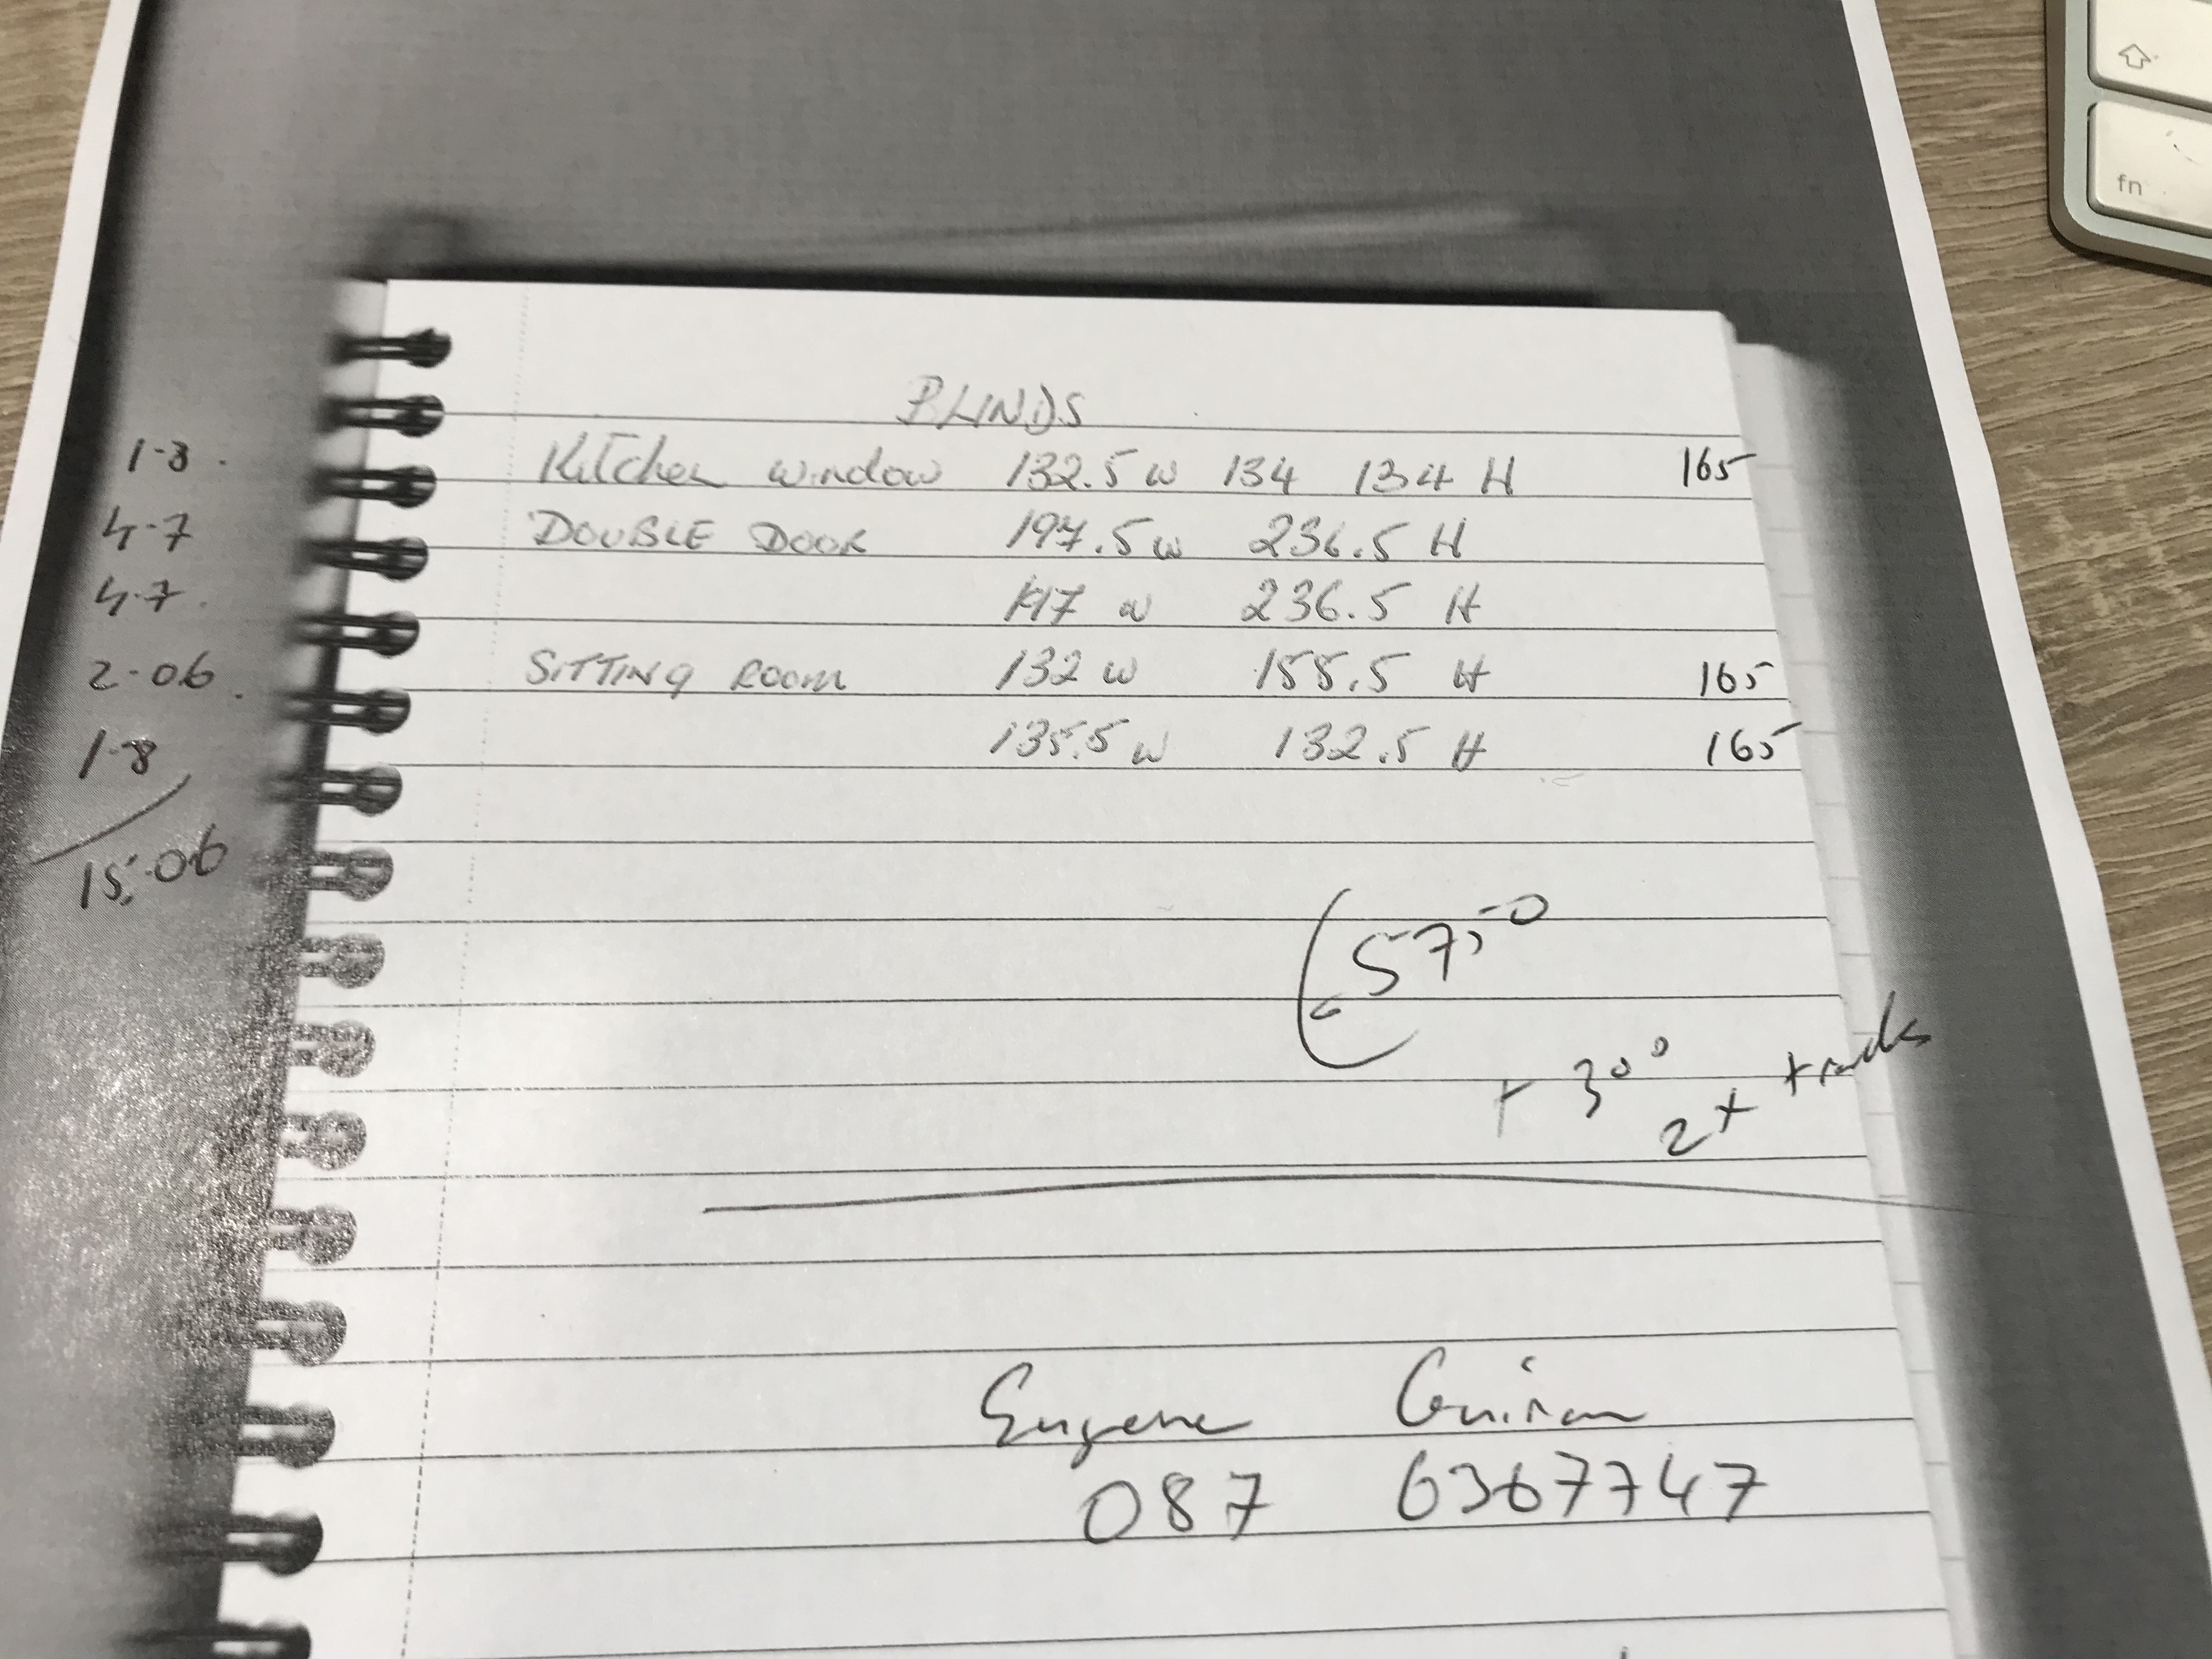 BLINDS
1.8 Kitchen window 132.5 w 134 134 H 165
4.7 DOUBLE DOOR 197.5 w 236.5 H
4.7 w 236.5 H
2.06 SITTING ROOM 132 w 155.5 H 165
1.8 135.5 w 132.5 H 165
15.06
2 x tracks
Eugene
087 6367747
fn